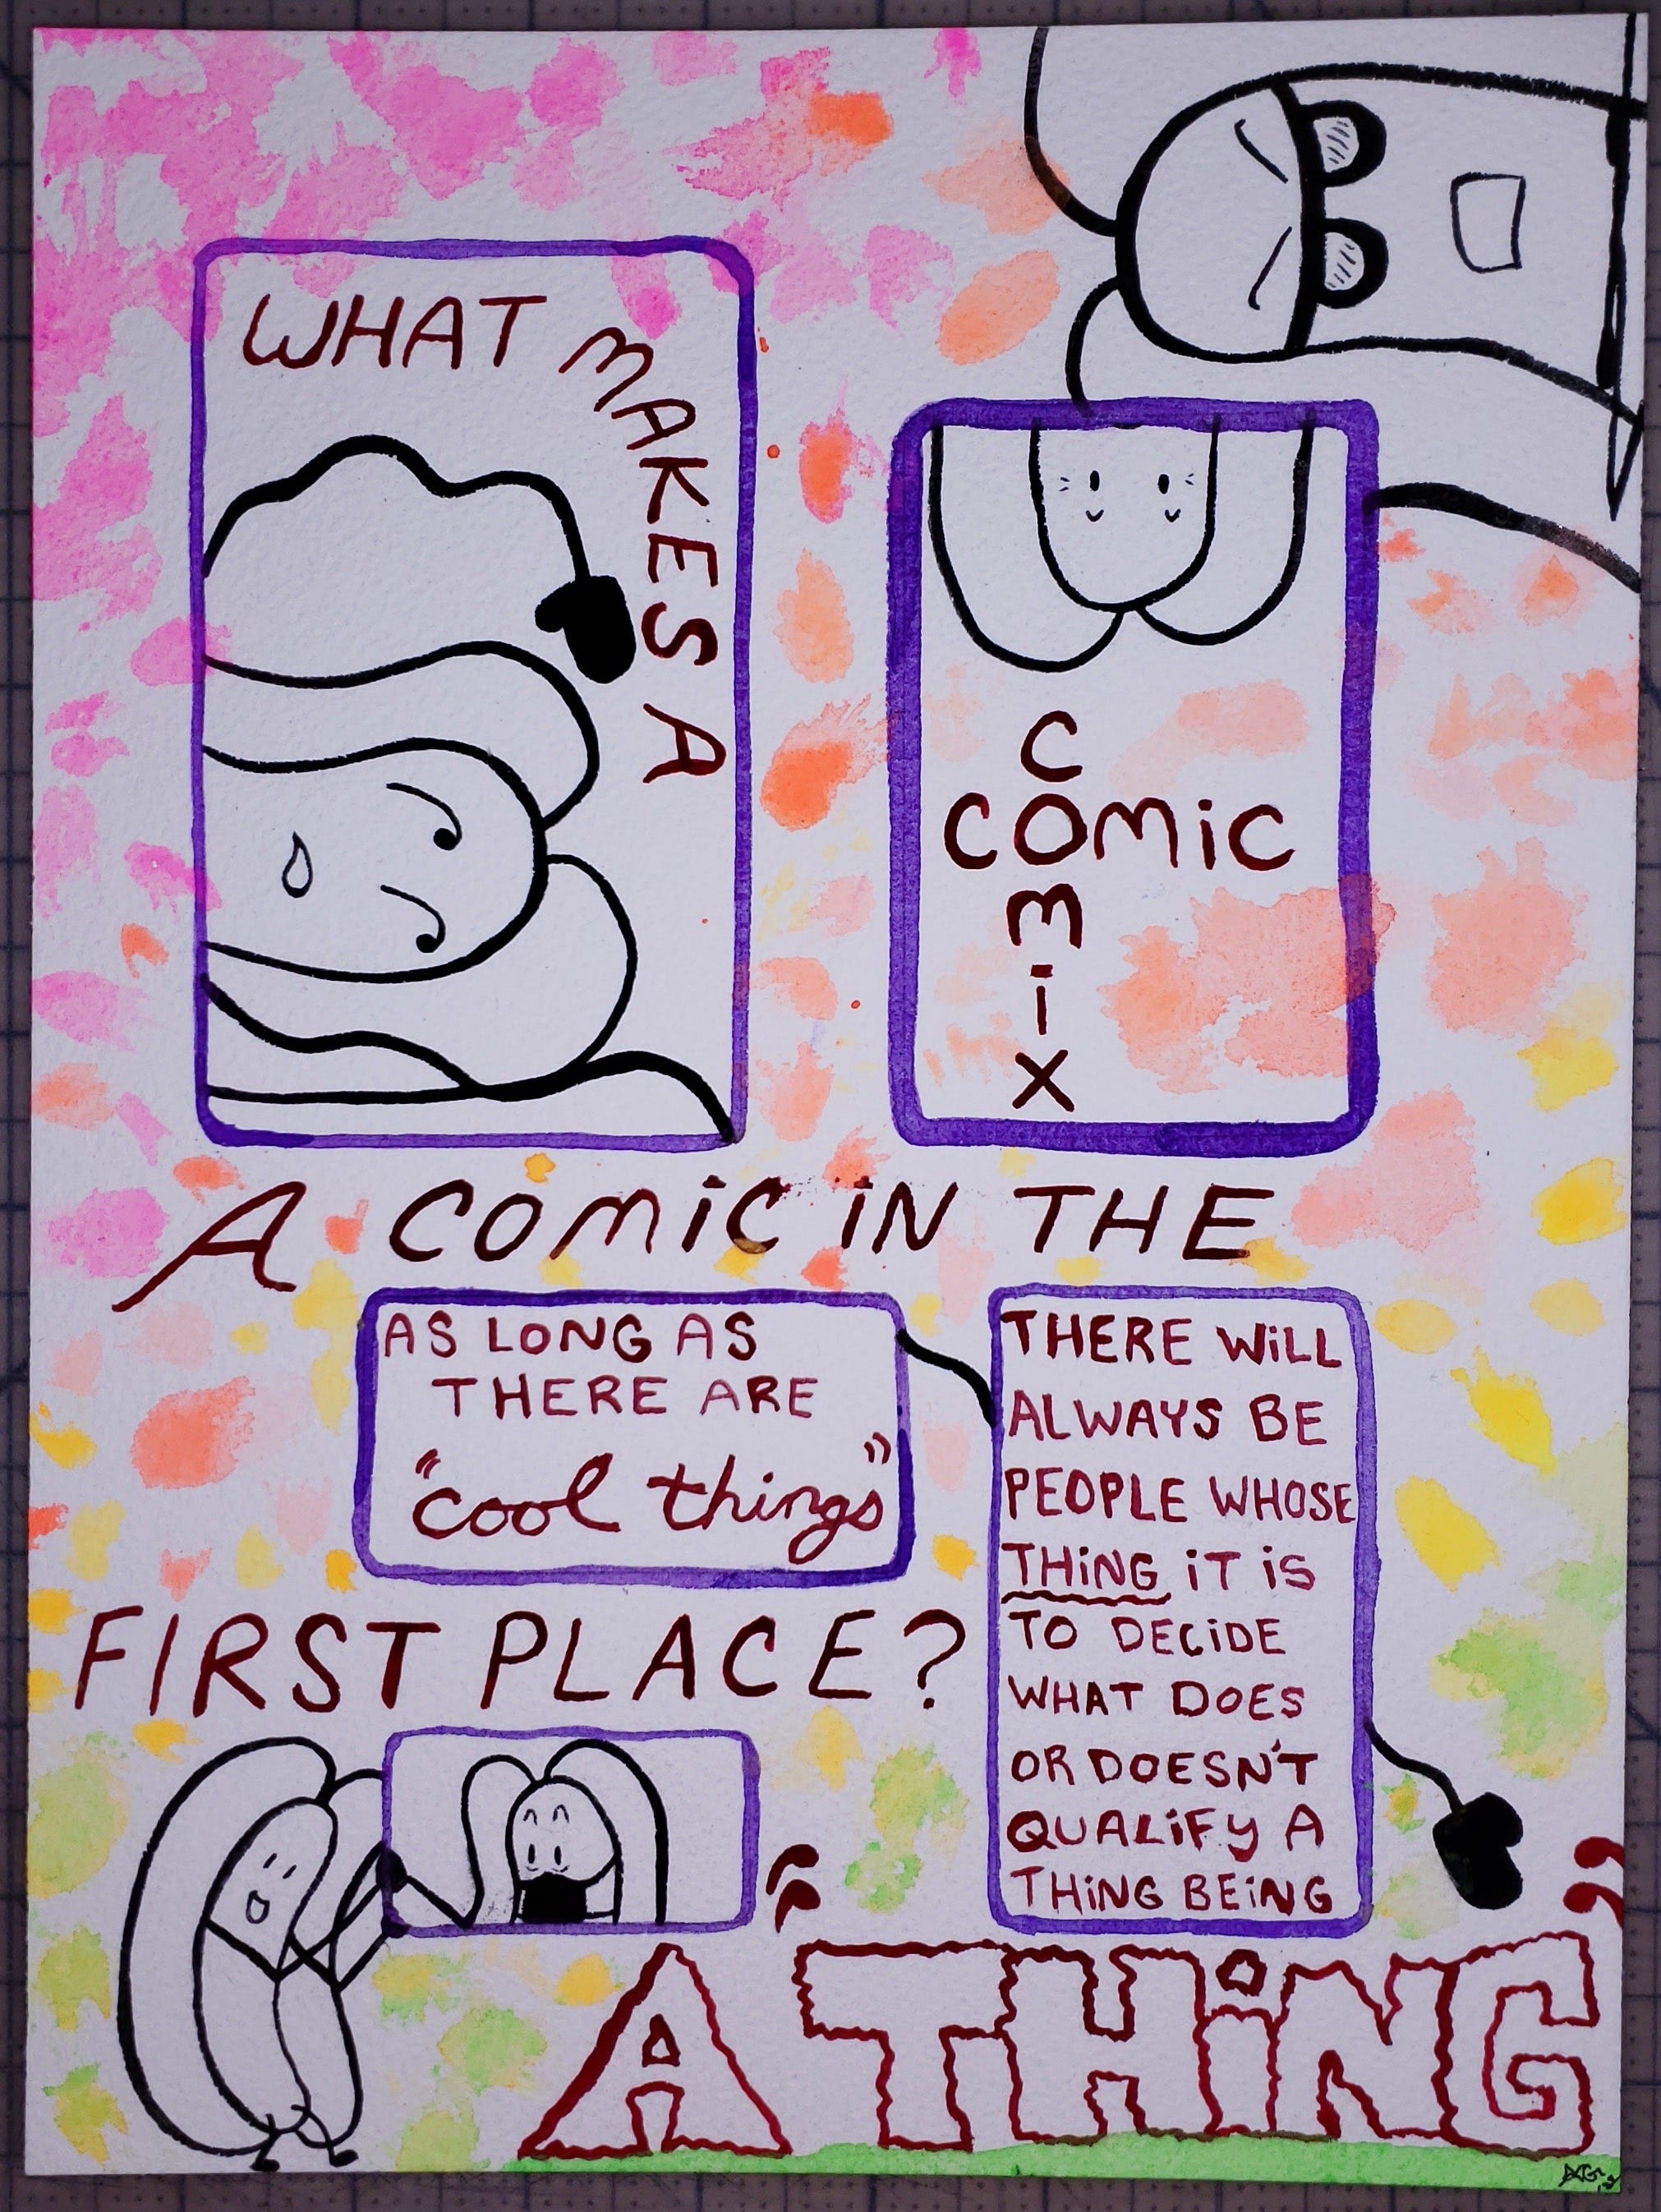 WHAT MAKES A
COMIC
COMIX
A COMIC IN THE
FIRST PLACE?
AS LONG AS
THERE ARE
"cool things"
THERE WILL
ALWAYS BE
PEOPLE WHOSE
THING IT IS
TO DECIDE
WHAT DOES
OR DOESN'T
QUALIFY A
THING BEING
"A THING"